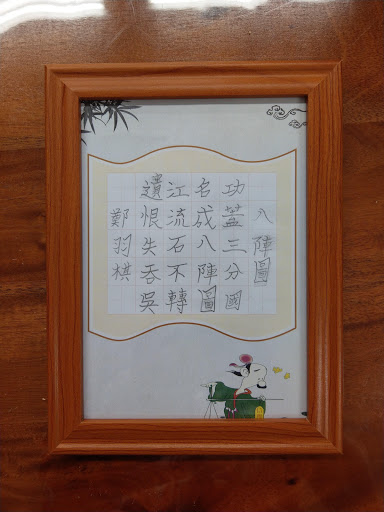 八陣圖
功蓋三分國
名成八陣圖
江流石不轉
遺恨失吞吳
鄭羽棋